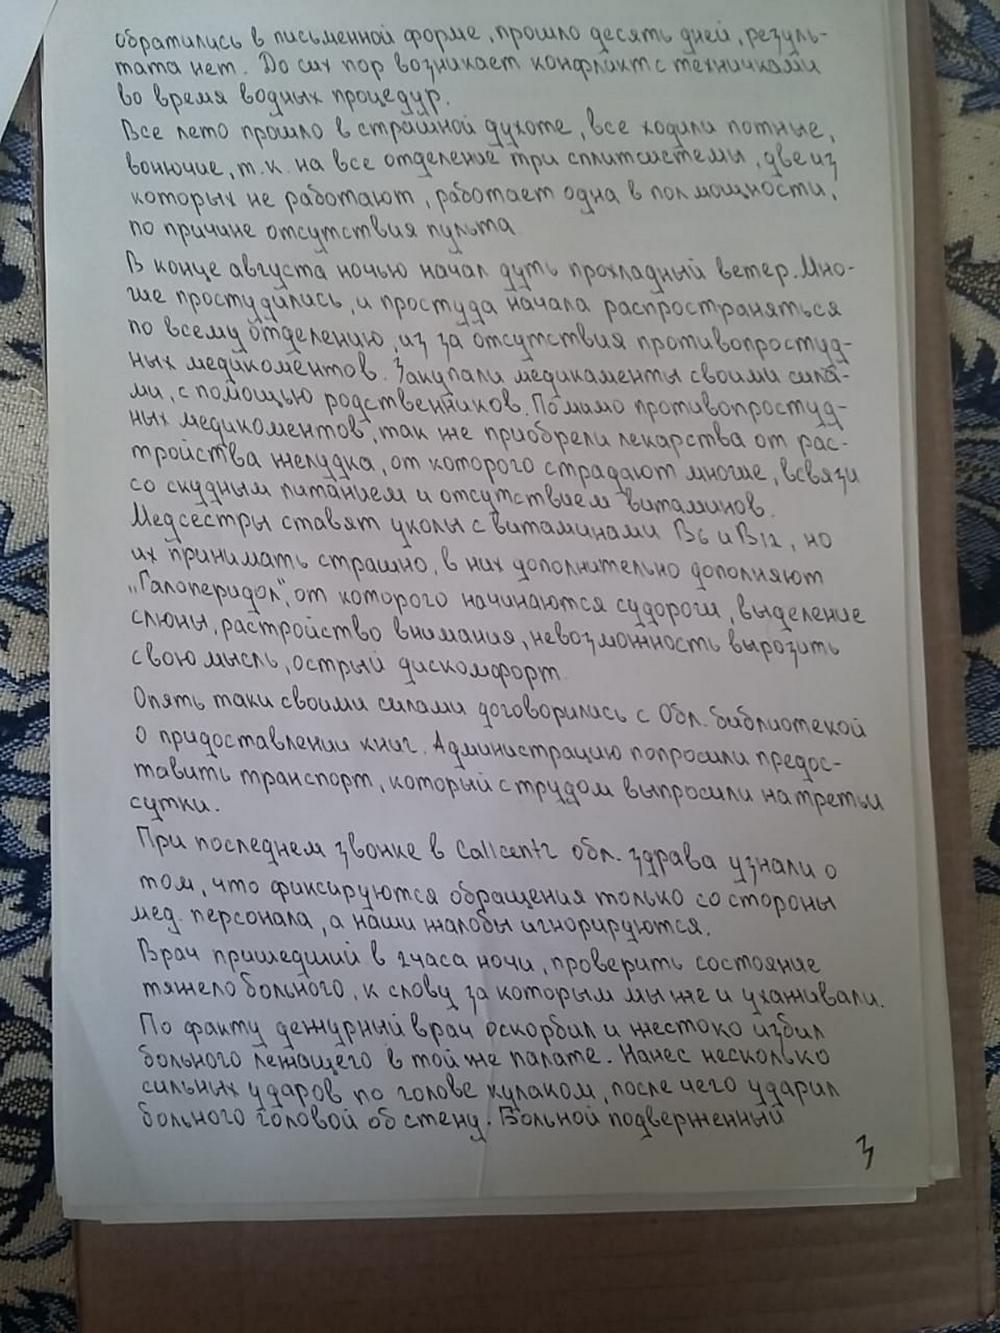 обратились в письменной форме, прошло десять дней, резуль-
тата нет. До сих пор возникает конфликт с техничками
во время водных процедур.
Все лето прошло в страшной духоте, все ходили потные,
вонючие, т.к. на все отделение три сплитсистемы, две из
которых не работают, работает одна в пол мощности,
по причине отсутствия пульта
В конце августа ночью начал дуть прохладный ветер. Мно-
гие простудились, и простуда начала распространяться
по всему отделению, из за отсутствия противопростуд-
ных медикоментов. Закупали медикаменты своими сила-
ми, с помощью родственников. Помимо противопростуд-
ных медикоментов, так же приобрели лекарства от рас-
тройства желудка, от которого страдают многие, всвязи
со скудным питанием и отсутствием витаминов.
Медсестры ставят уколы с витаминами В6 и В12, но
их принимать страшно, в них дополнительно дополняют
„Галоперидол“, от которого начинаются судороги, выделение
слюны, растройство внимания, невозможность вырозить
свою мысль, острый дискомфорт.
Опять таки своими силами договорились с Обл. библиотекой
о придоставлении книг. Администрацию попросили предос-
тавить транспорт, который с трудом выпросили на третьи
сутки.
При последнем звонке в Callcentr обл. здрава узнали о
том, что фиксируются обращения только со стороны
мед. персонала, а наши жалобы игнорируются.
Врач пришедший в 2 часа ночи, проверить состояние
тяжело больного, к слову за которым мы же и ухаживали.
По факту дежурный врач оскорбил и жестоко избил
больного лежащего в той же палате. Нанес несколько
сильных ударов по голове кулаком, после чего ударил
больного головой об стену. Больной подверженный
3